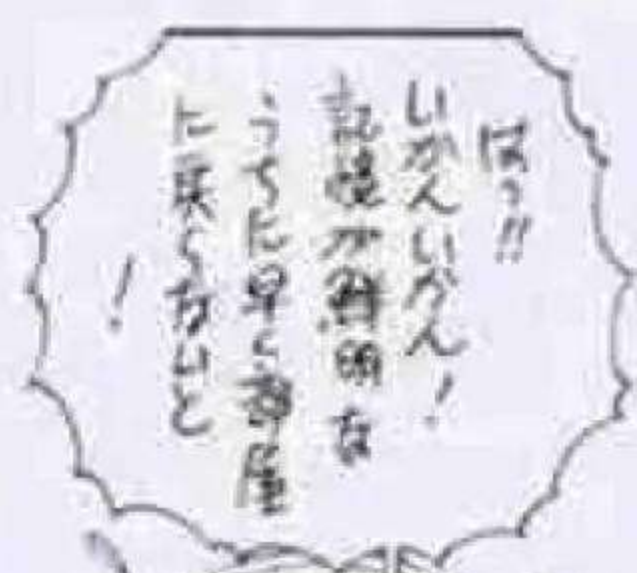 はっ!!
いかんいかん!
記憶が鮮明な
うちに早く部屋
に戻らないと
!